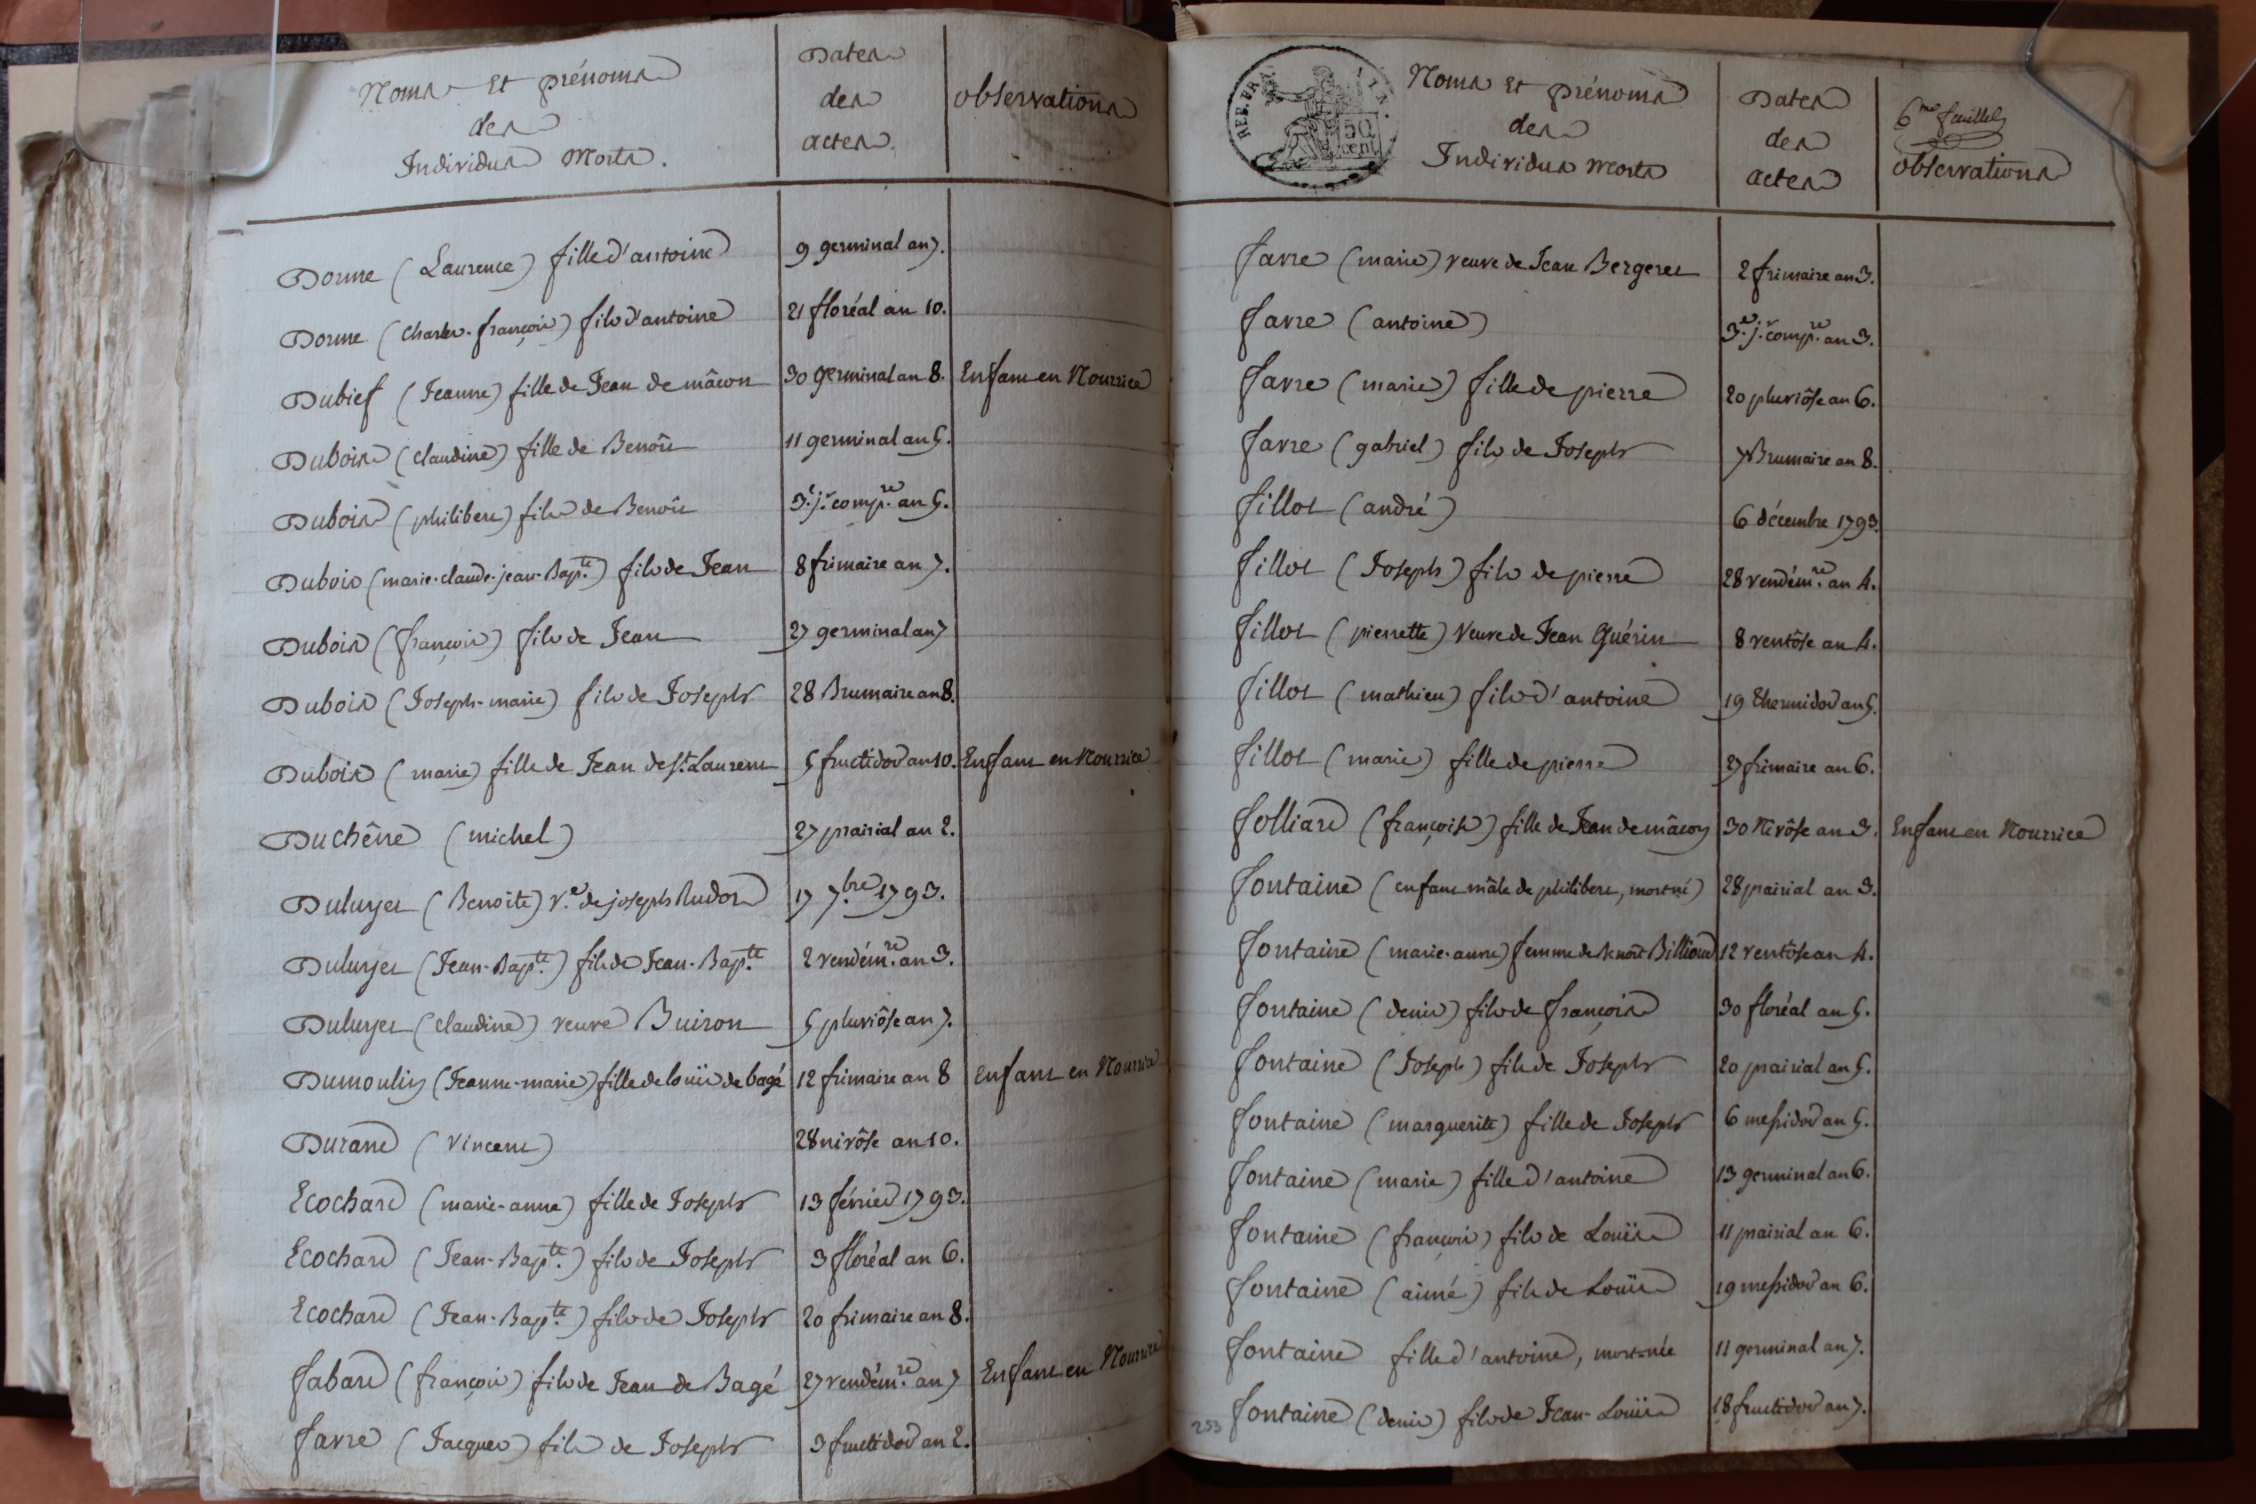 Noms et prénoms
des
Individus Morts.
Dates
des
actes
observations
Dorme (Laurence) fille d'antoine 9 germinal an 7.
Dorme (Charles-françois) fils d'antoine 21 floréal an 10.
Dubief (Jeanne) fille de Jean de mâcon 30 germinal an 8. Enfant en Nourrice
Dubois (claudine) fille de Benoît 11 germinal an 5.
Dubois (philibert) fils de Benoît 3.e j.r comp.re an 5.
Dubois (marie-claude-jean-Bap.te) fils de Jean 8 frimaire an 7.
Dubois (françois) fils de Jean 27 germinal an 7
Dubois (Joseph-marie) fils de Joseph 28 Brumaire an 8.
Dubois (marie) fille de Jean de St. Laurent 5 fructidor an 10. Enfant en Nourrice
Duchêne (michel) 27 prairial an 2.
Duluyet (Benoite) v.e de joseph Rudon 17 7.bre 1793.
Duluyet (Jean-Bap.te) fils de Jean-Bap.te 2 vendém.re an 3.
Duluyet (claudine) veuve Buiron 5 pluviôse an 7.
Dumoulin (Jeanne-marie) fille de louis de bagé 12 frimaire an 8 Enfant en Nourrice
Durand (Vincent) 28 nivôse an 10.
Ecochard (marie-anne) fille de Joseph 13 février 1793.
Ecochard (Jean-Bap.te) fils de Joseph 3 floréal an 6.
Ecochard (Jean-Bap.te) fils de Joseph 20 frimaire an 8.
fabard (françois) fils de Jean de Bagé 27 vendém.re an 7 Enfant en Nourrice
farre (Jacques) fils de Joseph 3 fructidor an 2.
REP. FRA
50
cent
Noms et prénoms
des
Individus Morts
Dates
des
actes
6me feuillet
observations
farre (marie) veuve de Jean Bergeret 2 frimaire an 3.
farre (antoine) 3.e j.r comp.re an 3.
farre (marie) fille de pierre 20 pluviôse an 6.
farre (gabriel) fils de Joseph 7 Brumaire an 8.
fillot (andré) 6 décembre 1793.
fillot (Joseph) fils de pierre 28 vendém.re an 4.
fillot (pierrette) veuve de Jean Guérin 8 ventôse an 4.
fillot (mathieu) fils d'antoine 19 thermidor an 5.
fillot (marie) fille de pierre 27 frimaire an 6.
folliard (françoise) fille de Jean de mâcon 30 Nivôse an 3. Enfant en Nourrice
fontaine (enfant mâle de philibert, mort né) 28 prairial an 3.
fontaine (marie-anne) femme de Benoît Billioud 12 ventôse an 4.
fontaine (denis) fils de françois 30 floréal an 5.
fontaine (Joseph) fils de Joseph 20 prairial an 5.
fontaine (marguerite) fille de Joseph 6 messidor an 5.
fontaine (marie) fille d'antoine 13 germinal an 6.
fontaine (françois) fils de Louis 11 prairial an 6.
fontaine (aimé) fils de Louis 19 messidor an 6.
fontaine fille d'antoine, mort-née 11 germinal an 7.
fontaine (denis) fils de Jean-Louis 18 fructidor an 7.
253